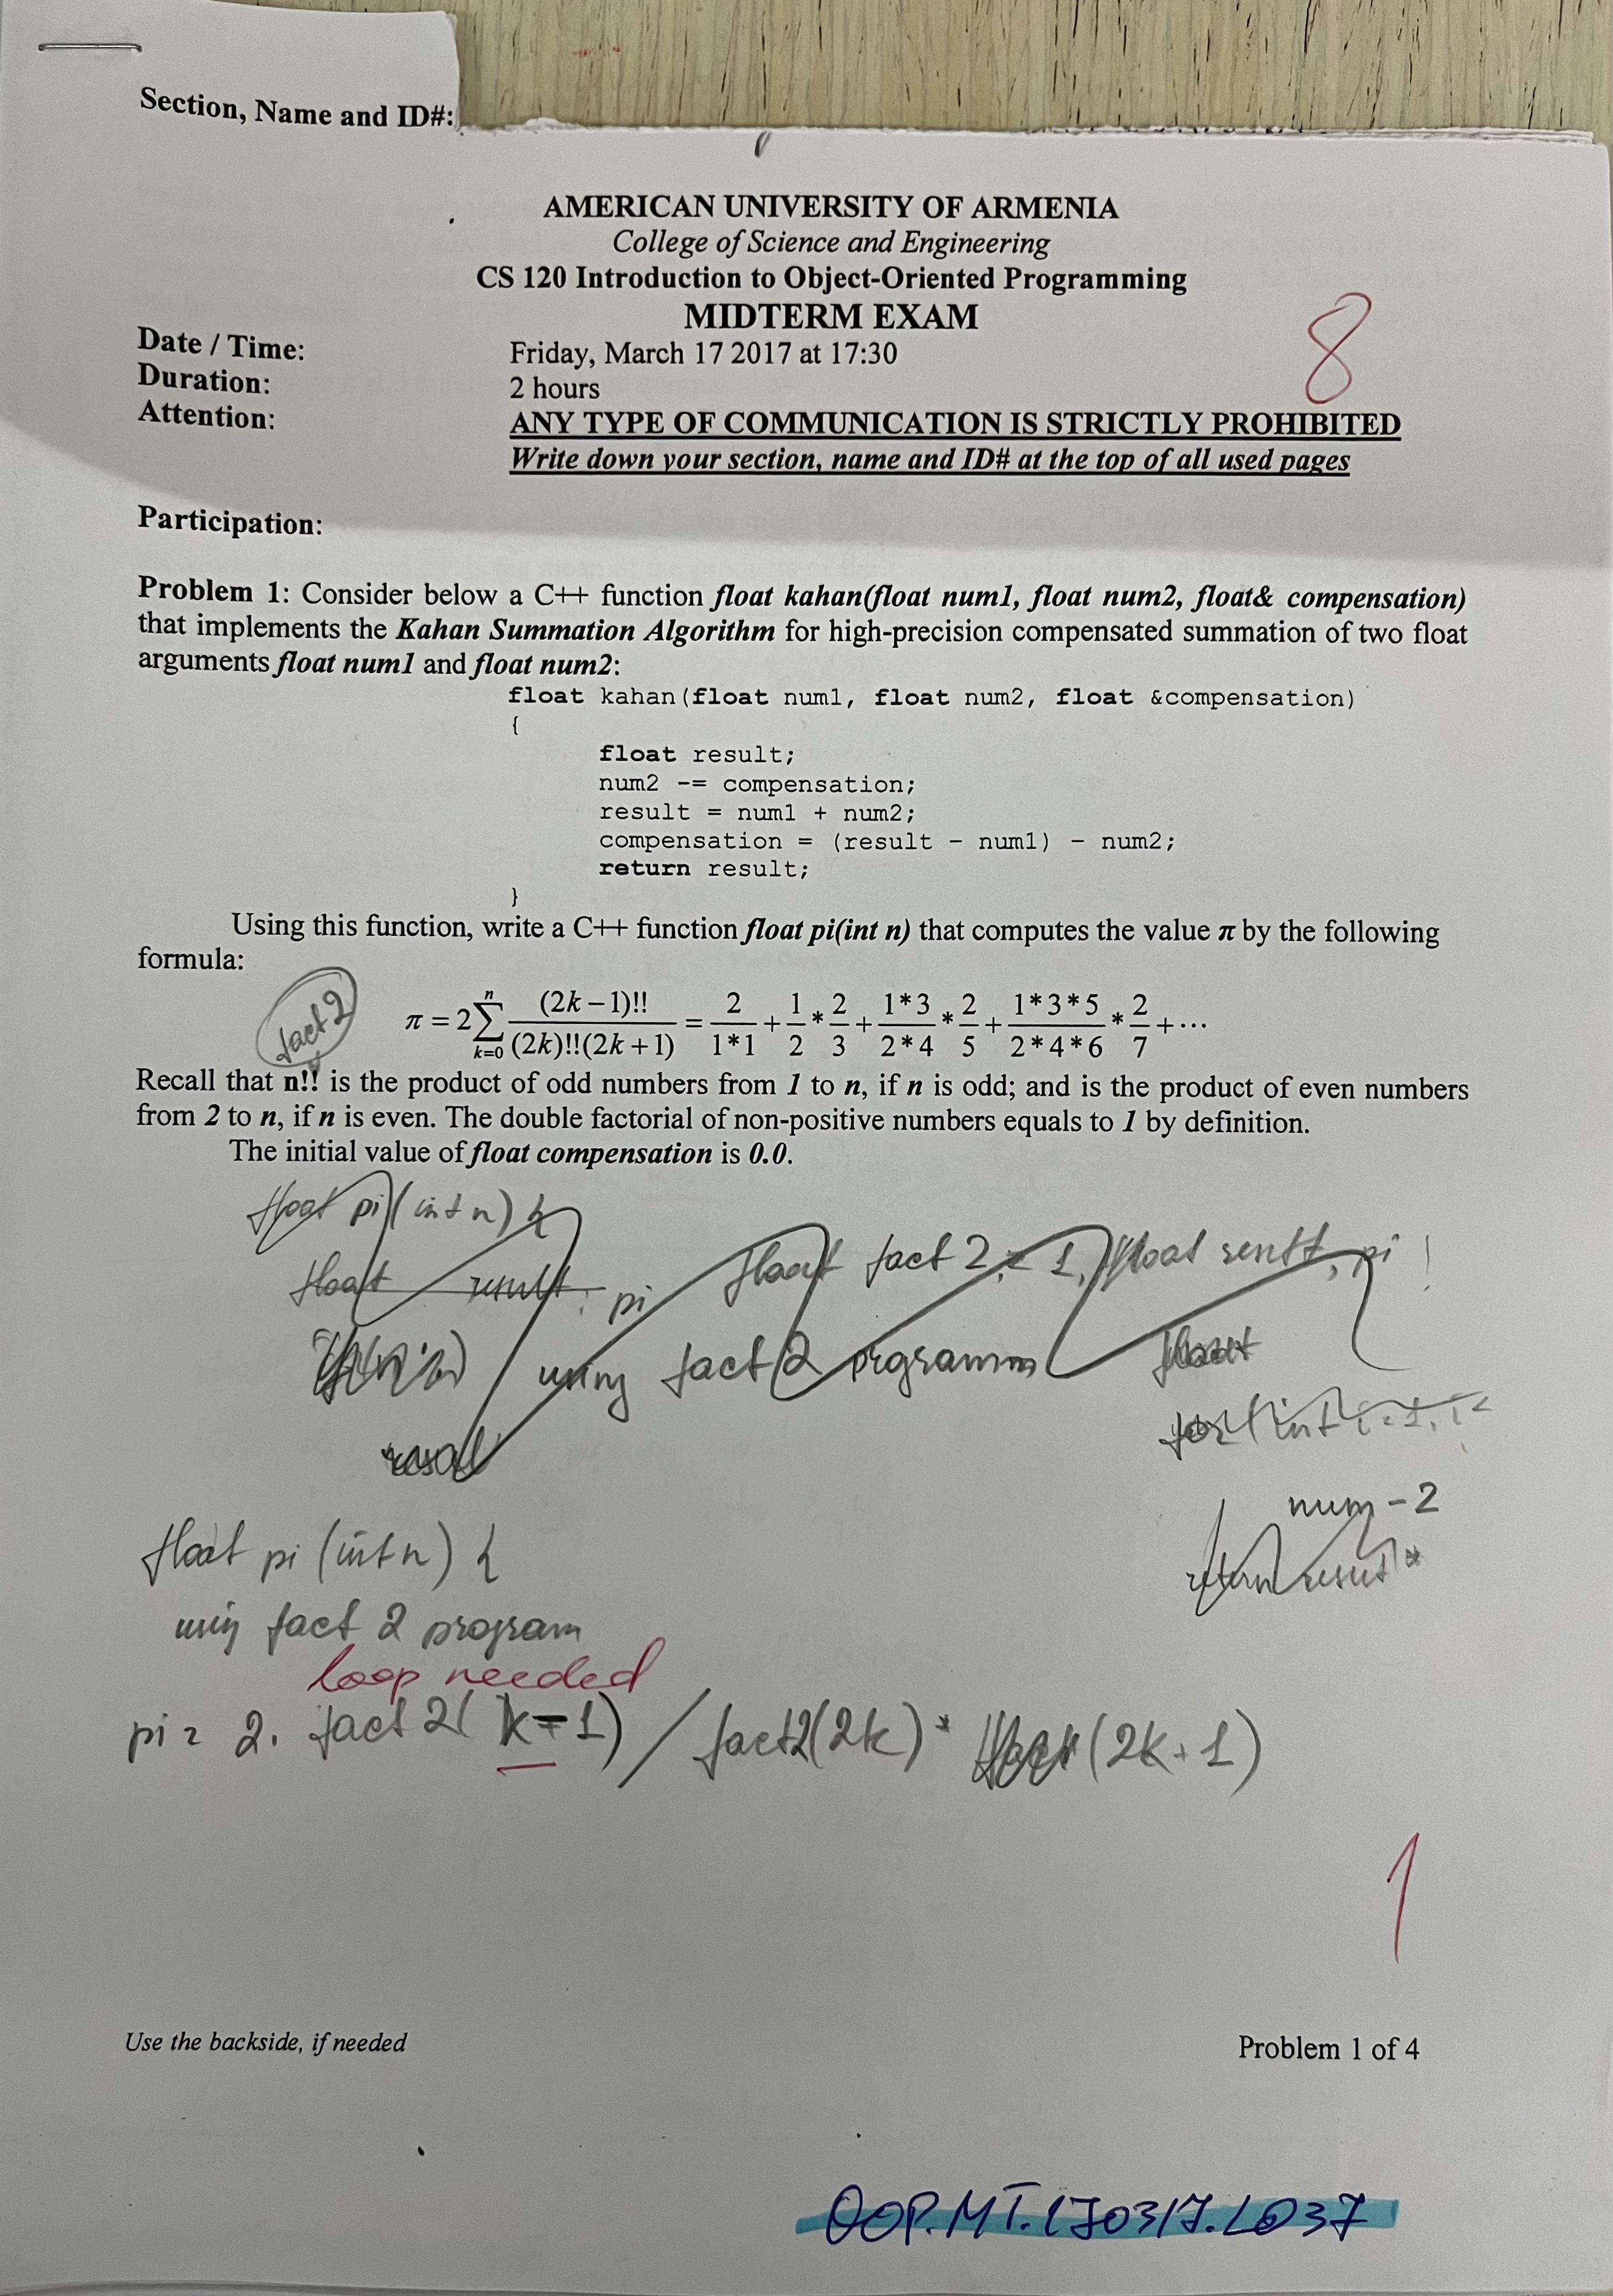 Section, Name and ID#:
AMERICAN UNIVERSITY OF ARMENIA
College of Science and Engineering
CS 120 Introduction to Object-Oriented Programming
MIDTERM EXAM
8
Date / Time: Friday, March 17 2017 at 17:30
Duration: 2 hours
Attention: ANY TYPE OF COMMUNICATION IS STRICTLY PROHIBITED
Write down your section, name and ID# at the top of all used pages
Participation:
Problem 1: Consider below a C++ function float kahan(float num1, float num2, float& compensation)
that implements the Kahan Summation Algorithm for high-precision compensated summation of two float
arguments float num1 and float num2:
float kahan(float num1, float num2, float &compensation)
{
float result;
num2 -= compensation;
result = num1 + num2;
compensation = (result - num1) - num2;
return result;
}
Using this function, write a C++ function float pi(int n) that computes the value π by the following
formula:
fact 2
π = 2 ∑_{k=0}^{n} (2k-1)!! / (2k)!!(2k+1) = 2/1*1 + 1/2 * 2/3 + 1*3/2*4 * 2/5 + 1*3*5/2*4*6 * 2/7 + ⋯
Recall that n!! is the product of odd numbers from 1 to n, if n is odd; and is the product of even numbers
from 2 to n, if n is even. The double factorial of non-positive numbers equals to 1 by definition.
The initial value of float compensation is 0.0.
float pi(int n) {
float result, pi float fact 2 = 1, float result, pi
using fact 2 programm float
for(int i = 1, i <
result
num - 2
return result *
float pi (int n) {
using fact 2 program
loop needed
pi = 2. fact 2( k-1) / fact2(2k) * (2k+1)
1
Use the backside, if needed
Problem 1 of 4
OOP.MT.170317.L037